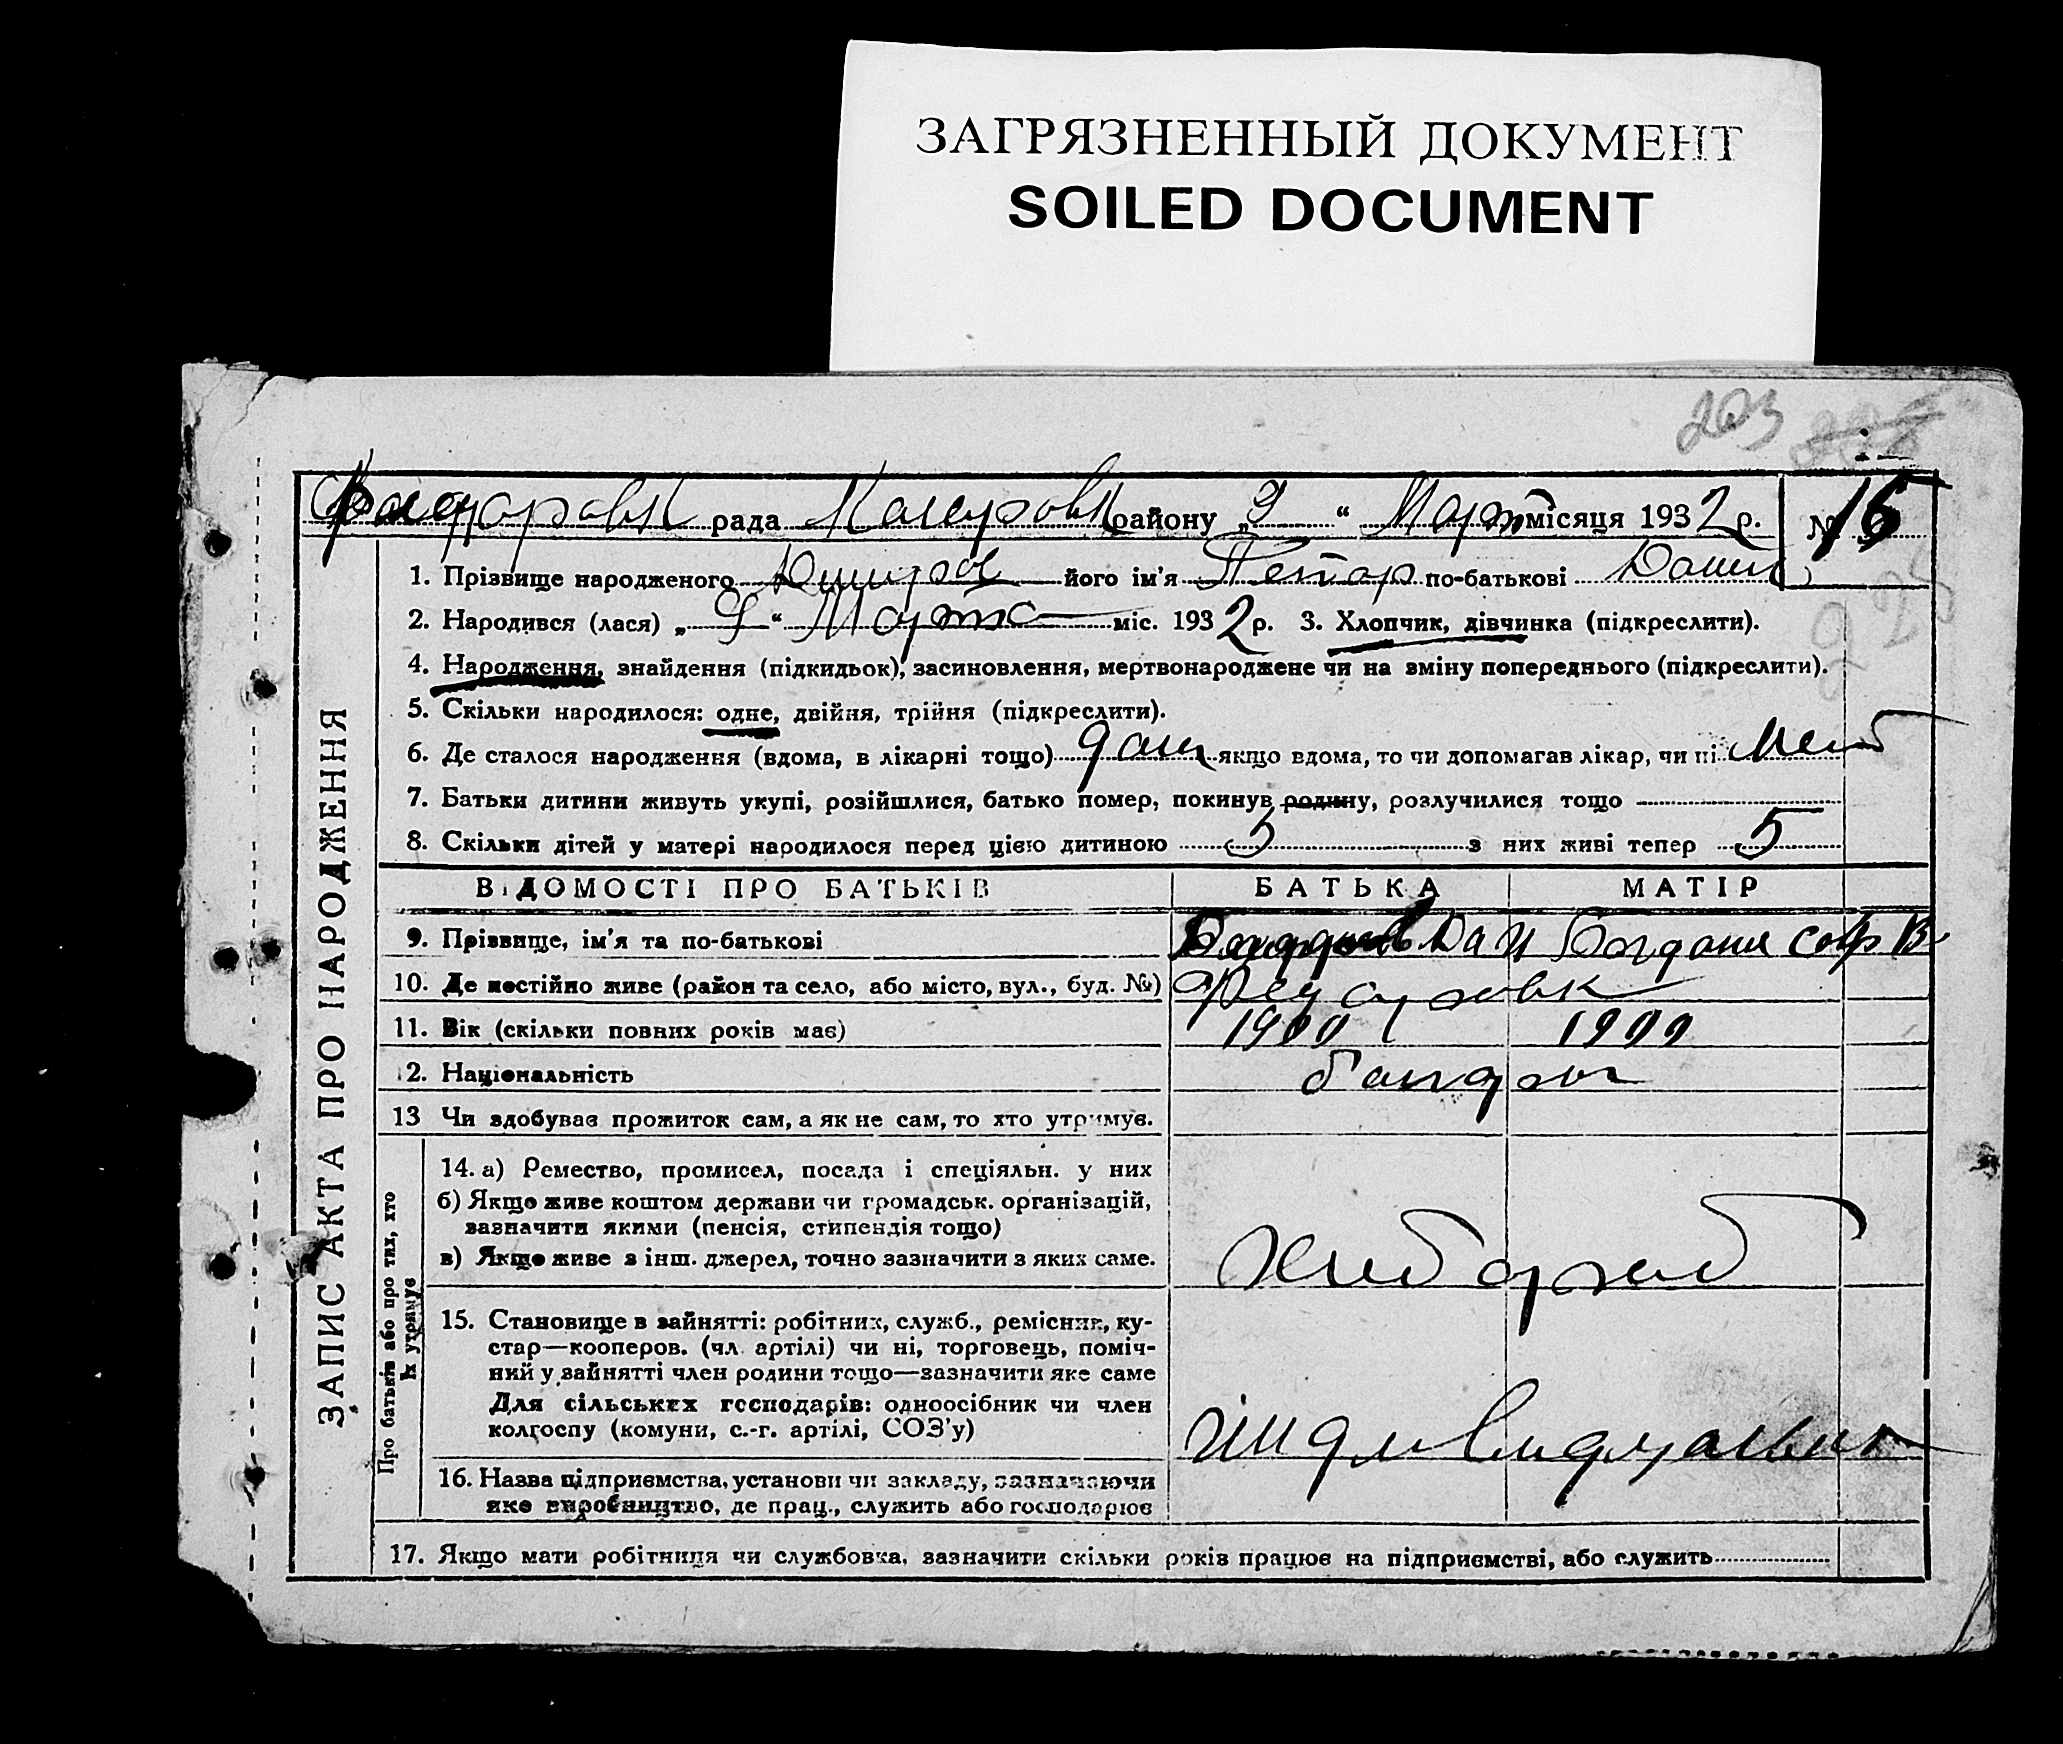 ЗАГРЯЗНЕННЫЙ ДОКУМЕНТ
SOILED DOCUMENT
203
рада району „9“ Март місяця 1932 р. № 16
1. Прізвище народженого його ім'я Петар по-батькові Данил
2. Народився (лася) „9“ Марта міс. 1932 р. 3. Хлопчик, дівчинка (підкреслити).
4. Народження, знайдення (підкидьок), засиновлення, мертвонароджене чи на зміну попереднього (підкреслити).
5. Скільки народилося: одне, двійня, трійня (підкреслити).
6. Де сталося народження (вдома, в лікарні тощо) якщо вдома, то чи допомагав лікар, чи ні
7. Батьки дитини живуть укупі, розійшлися, батько помер, покинув родину, розлучилися тощо
8. Скільки дітей у матері народилося перед цією дитиною 5 з них живі тепер 5
ЗАПИС АКТА ПРО НАРОДЖЕННЯ
ВІДОМОСТІ ПРО БАТЬКІВ БАТЬКА МАТІР
9. Прізвище, ім'я та по-батькові
10. Де постійно живе (район та село, або місто, вул., буд. №)
11. Вік (скільки повних років має) 1900 1900
12. Національність
13 Чи здобуває прожиток сам, а як не сам, то хто утримує.
Про батьків або про тих, хто
їх утримує
14. а) Ремество, промисел, посада і спеціяльн. у них
б) Якщо живе коштом держави чи громадськ. організацій,
зазначити якими (пенсія, стипендія тощо)
в) Якщо живе з інш. джерел, точно зазначити з яких саме.
хлебороб
15. Становище в зайнятті: робітник, служб., ремісник, ку-
стар—кооперов. (чл. артілі) чи ні, торговець, поміч-
ний у зайнятті член родини тощо—зазначити яке саме
Для сільських господарів: одноосібник чи член
колгоспу (комуни, с.-г. артілі, СОЗ'у)
16. Назва підприємства, установи чи закладу, зазначаючи
яке виробництво, де прац., служить або господарює
17. Якщо мати робітниця чи службовка, зазначити скільки років працює на підприємстві, або служить